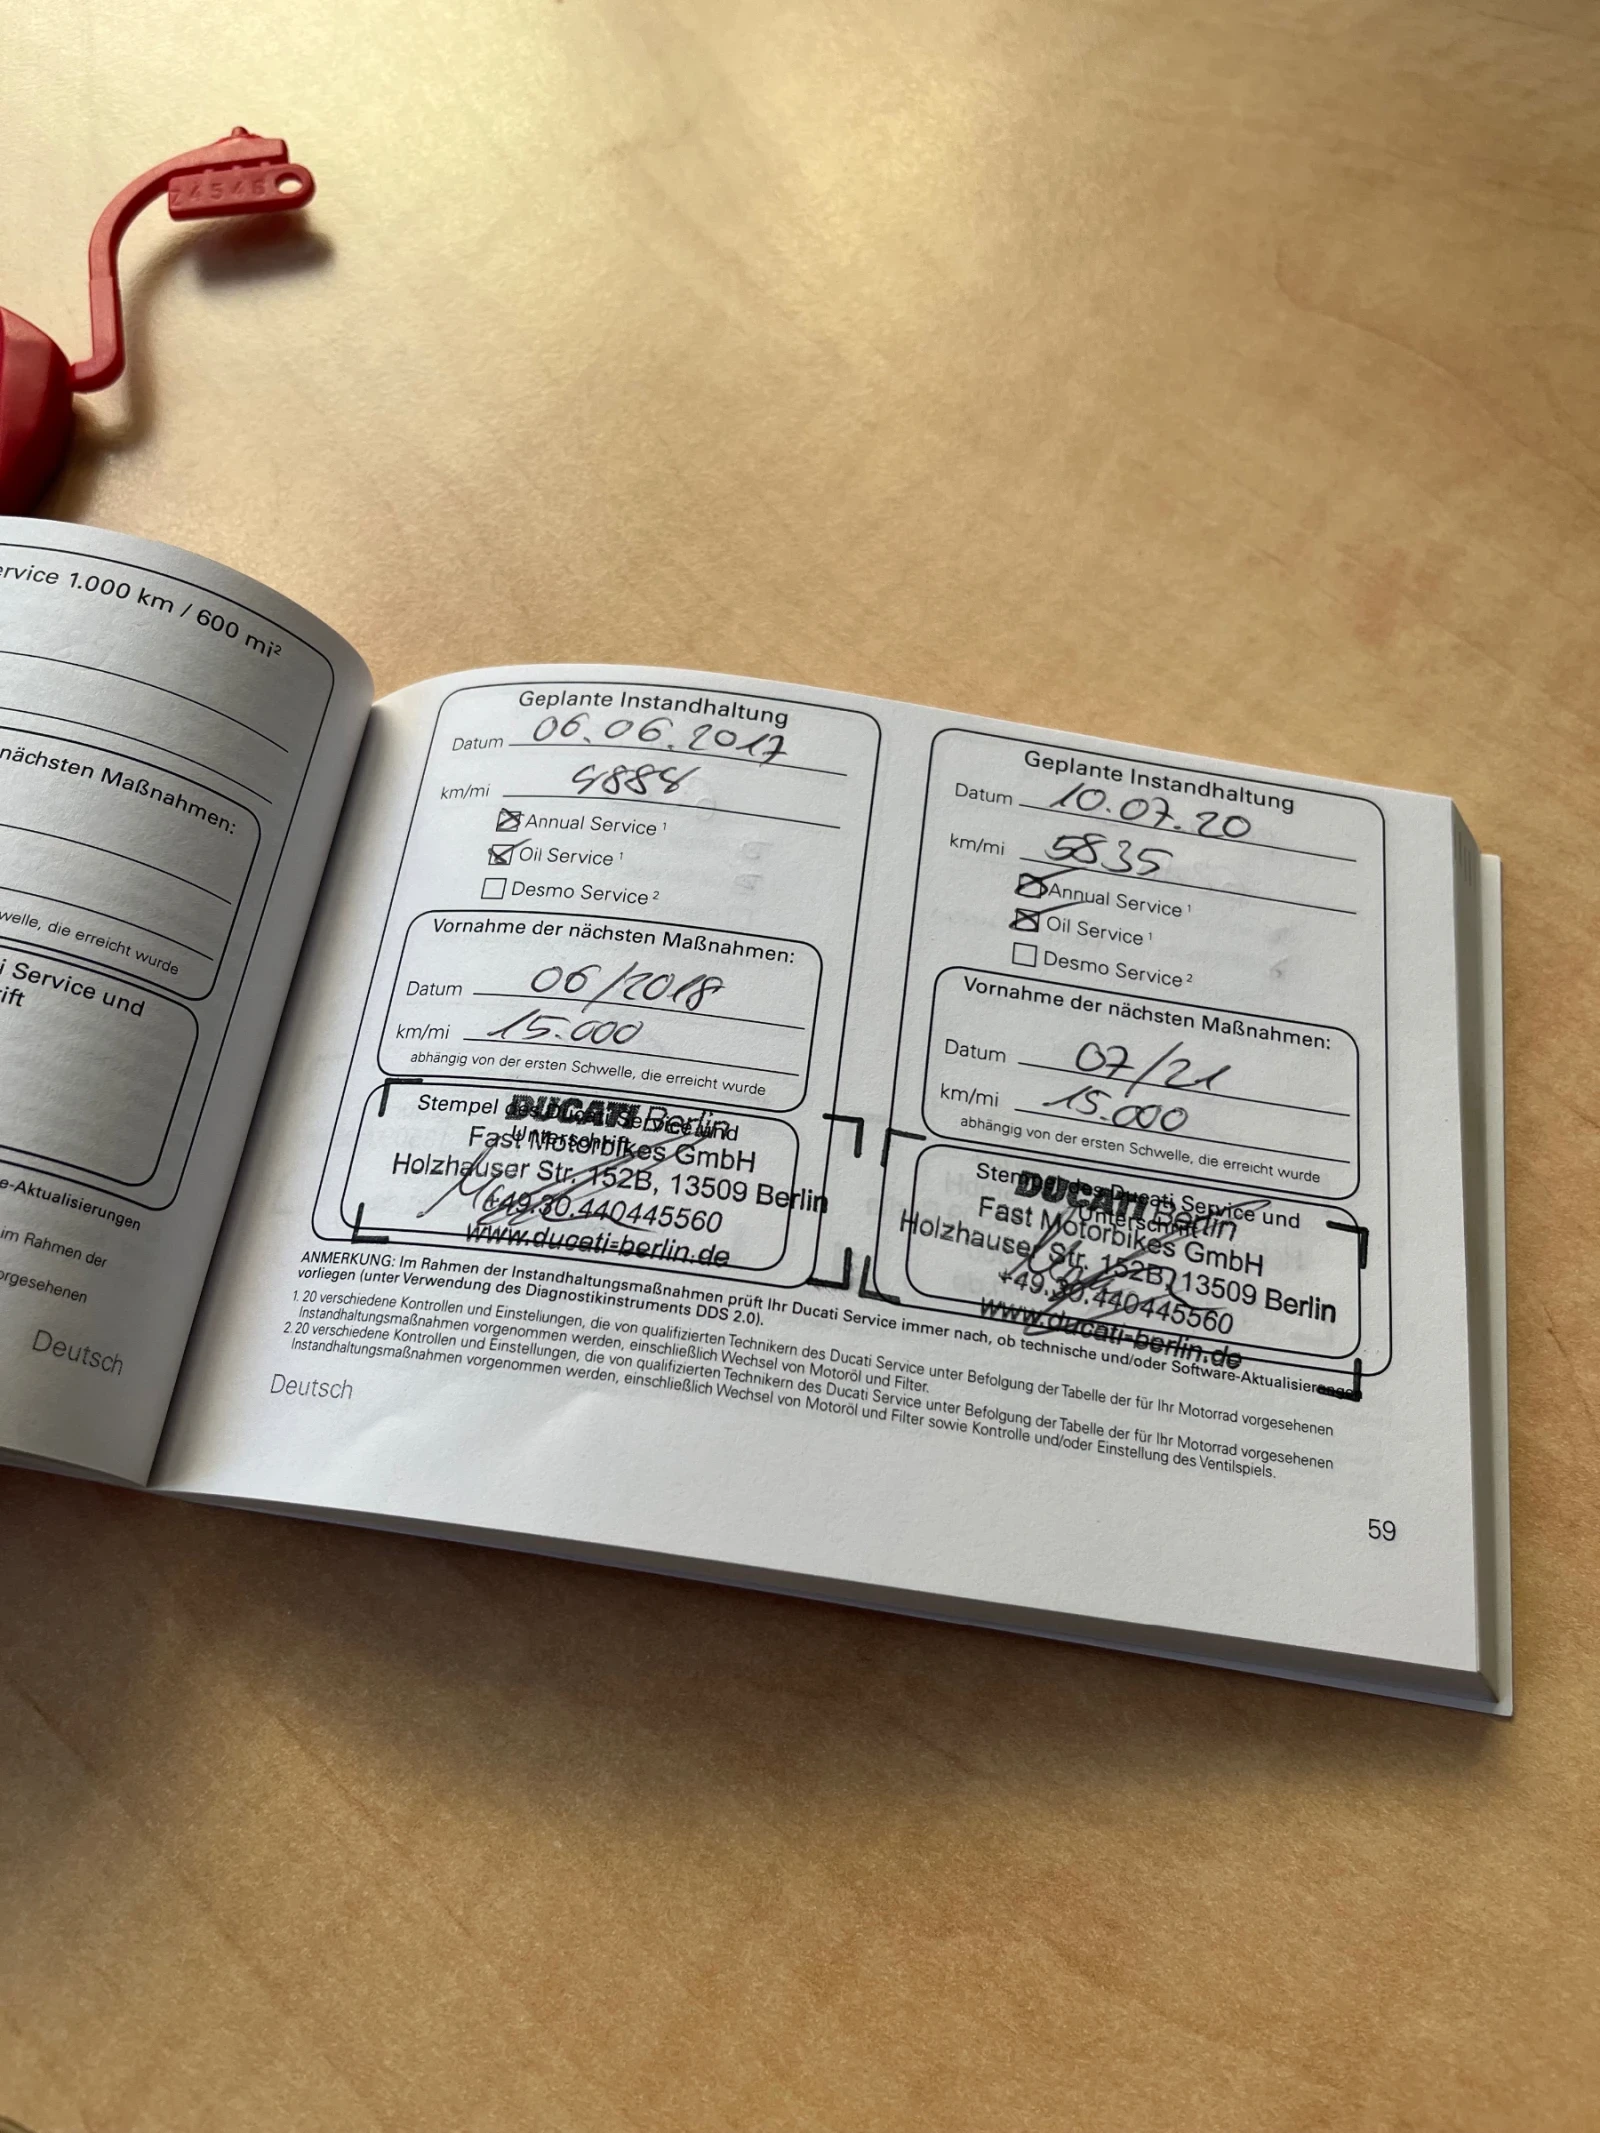 4546
ervice 1.000 km / 600 mi²
nächsten Maßnahmen:
welle, die erreicht wurde
i Service und
ift
e-Aktualisierungen
im Rahmen der
orgesehenen
Deutsch
Geplante Instandhaltung
Datum 06.06.2017
km/mi 4884
Annual Service ¹
Oil Service ¹
Desmo Service ²
Vornahme der nächsten Maßnahmen:
Datum 06/2018
km/mi 15.000
abhängig von der ersten Schwelle, die erreicht wurde
Stempel des Ducati Service und
Unterschrift
DUCATI Berlin
Fast Motorbikes GmbH
Holzhauser Str. 152B, 13509 Berlin
+49.30.440445560
www.ducati-berlin.de
Geplante Instandhaltung
Datum 10.07.20
km/mi 5835
Annual Service ¹
Oil Service ¹
Desmo Service ²
Vornahme der nächsten Maßnahmen:
Datum 07/21
km/mi 15.000
abhängig von der ersten Schwelle, die erreicht wurde
Stempel des Ducati Service und
Unterschrift
DUCATI Berlin
Fast Motorbikes GmbH
Holzhauser Str. 152B, 13509 Berlin
+49.30.440445560
www.ducati-berlin.de
ANMERKUNG: Im Rahmen der Instandhaltungsmaßnahmen prüft Ihr Ducati Service immer nach, ob technische und/oder Software-Aktualisierungen
vorliegen (unter Verwendung des Diagnostikinstruments DDS 2.0).
1. 20 verschiedene Kontrollen und Einstellungen, die von qualifizierten Technikern des Ducati Service unter Befolgung der Tabelle der für Ihr Motorrad vorgesehenen
Instandhaltungsmaßnahmen vorgenommen werden, einschließlich Wechsel von Motoröl und Filter.
2. 20 verschiedene Kontrollen und Einstellungen, die von qualifizierten Technikern des Ducati Service unter Befolgung der Tabelle der für Ihr Motorrad vorgesehenen
Instandhaltungsmaßnahmen vorgenommen werden, einschließlich Wechsel von Motoröl und Filter sowie Kontrolle und/oder Einstellung des Ventilspiels.
Deutsch
59